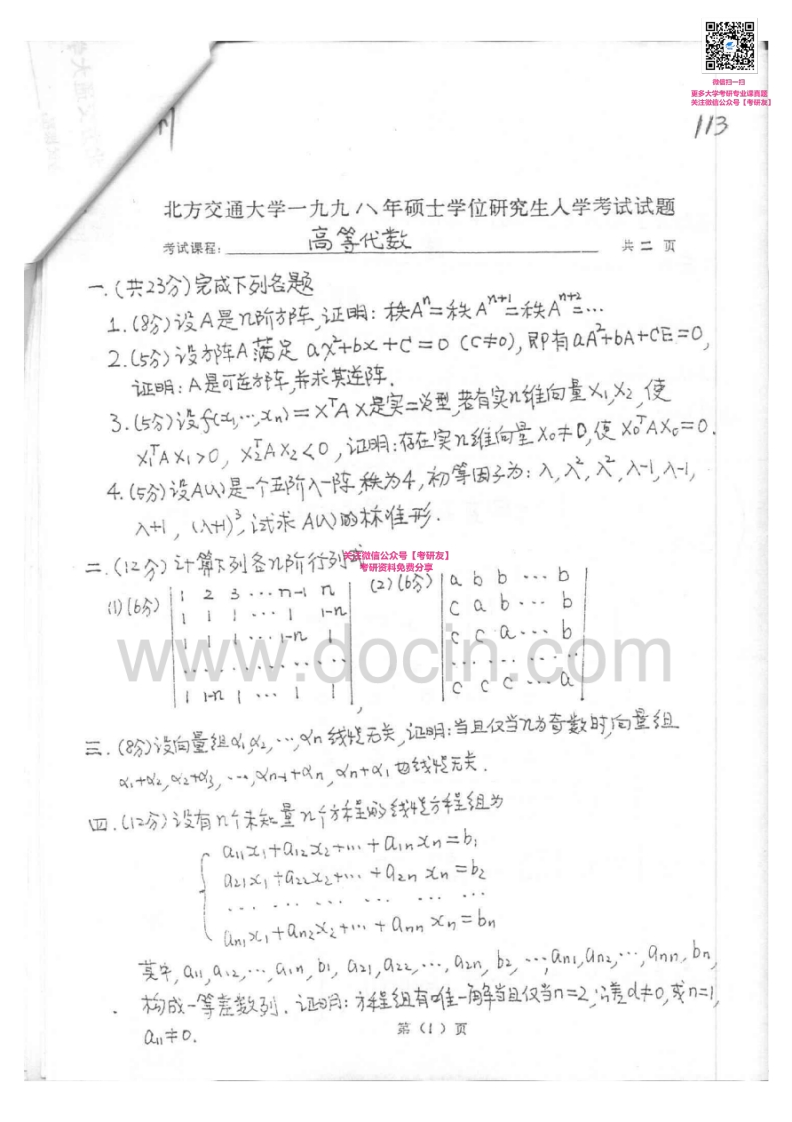 微信扫一扫
更多大学考研专业课真题
关注微信公众号【考研友】
113
北方交通大学一九九八年硕士学位研究生入学考试试题
考试课程: 高等代数 共二页
一.(共23分)完成下列各题
1.(8分)设A是n阶方阵,证明: 秩Aⁿ=秩Aⁿ⁺¹=秩Aⁿ⁺²=…
2.(5分)设方阵A满足 ax²+bx+c=0 (c≠0), 即有aA²+bA+cE=0,
证明: A是可逆方阵,并求其逆阵.
3.(5分)设f(x₁,…,xₙ)=XᵀAX是实二次型,若有实n维向量X₁,X₂,使
X₁ᵀAX₁>0, X₂ᵀAX₂<0, 证明:存在实n维向量X₀≠0,使X₀ᵀAX₀=0.
4.(5分)设A(λ)是一个五阶λ-阵,秩为4,初等因子为: λ,λ²,λ²,λ-1,λ-1,
λ+1, (λ+1)³,试求A(λ)的标准形.
二.(12分)计算下列各n阶行列式
关注微信公众号【考研友】
考研资料免费分享
(1)(6分) (2)(6分)
1 2 3 … n-1 n
1 1 1 … 1 1-n
1 1 1 … 1-n 1
… … … … … …
1 1-n 1 … 1 1 ,
a b b … b
c a b … b
c c a … b
… … … …
c c c … a
www.docin.com
三.(8分)设向量组α₁,α₂,…,αₙ线性无关,证明:当且仅当n为奇数时,向量组
α₁+α₂,α₂+α₃,…,αₙ₋₁+αₙ,αₙ+α₁也线性无关.
四.(12分)设有n个未知量n个方程的线性方程组为
a₁₁x₁+a₁₂x₂+…+a₁ₙxₙ=b₁
a₂₁x₁+a₂₂x₂+…+a₂ₙxₙ=b₂
… … … … … …
aₙ₁x₁+aₙ₂x₂+…+aₙₙxₙ=bₙ
其中,a₁₁,a₁₂,…,a₁ₙ,b₁,a₂₁,a₂₂,…,a₂ₙ,b₂,…,aₙ₁,aₙ₂,…,aₙₙ,bₙ,
构成一等差数列. 证明: 方程组有唯一解当且仅当n=2,公差d≠0,或n=1,
a₁₁≠0.
第(1)页